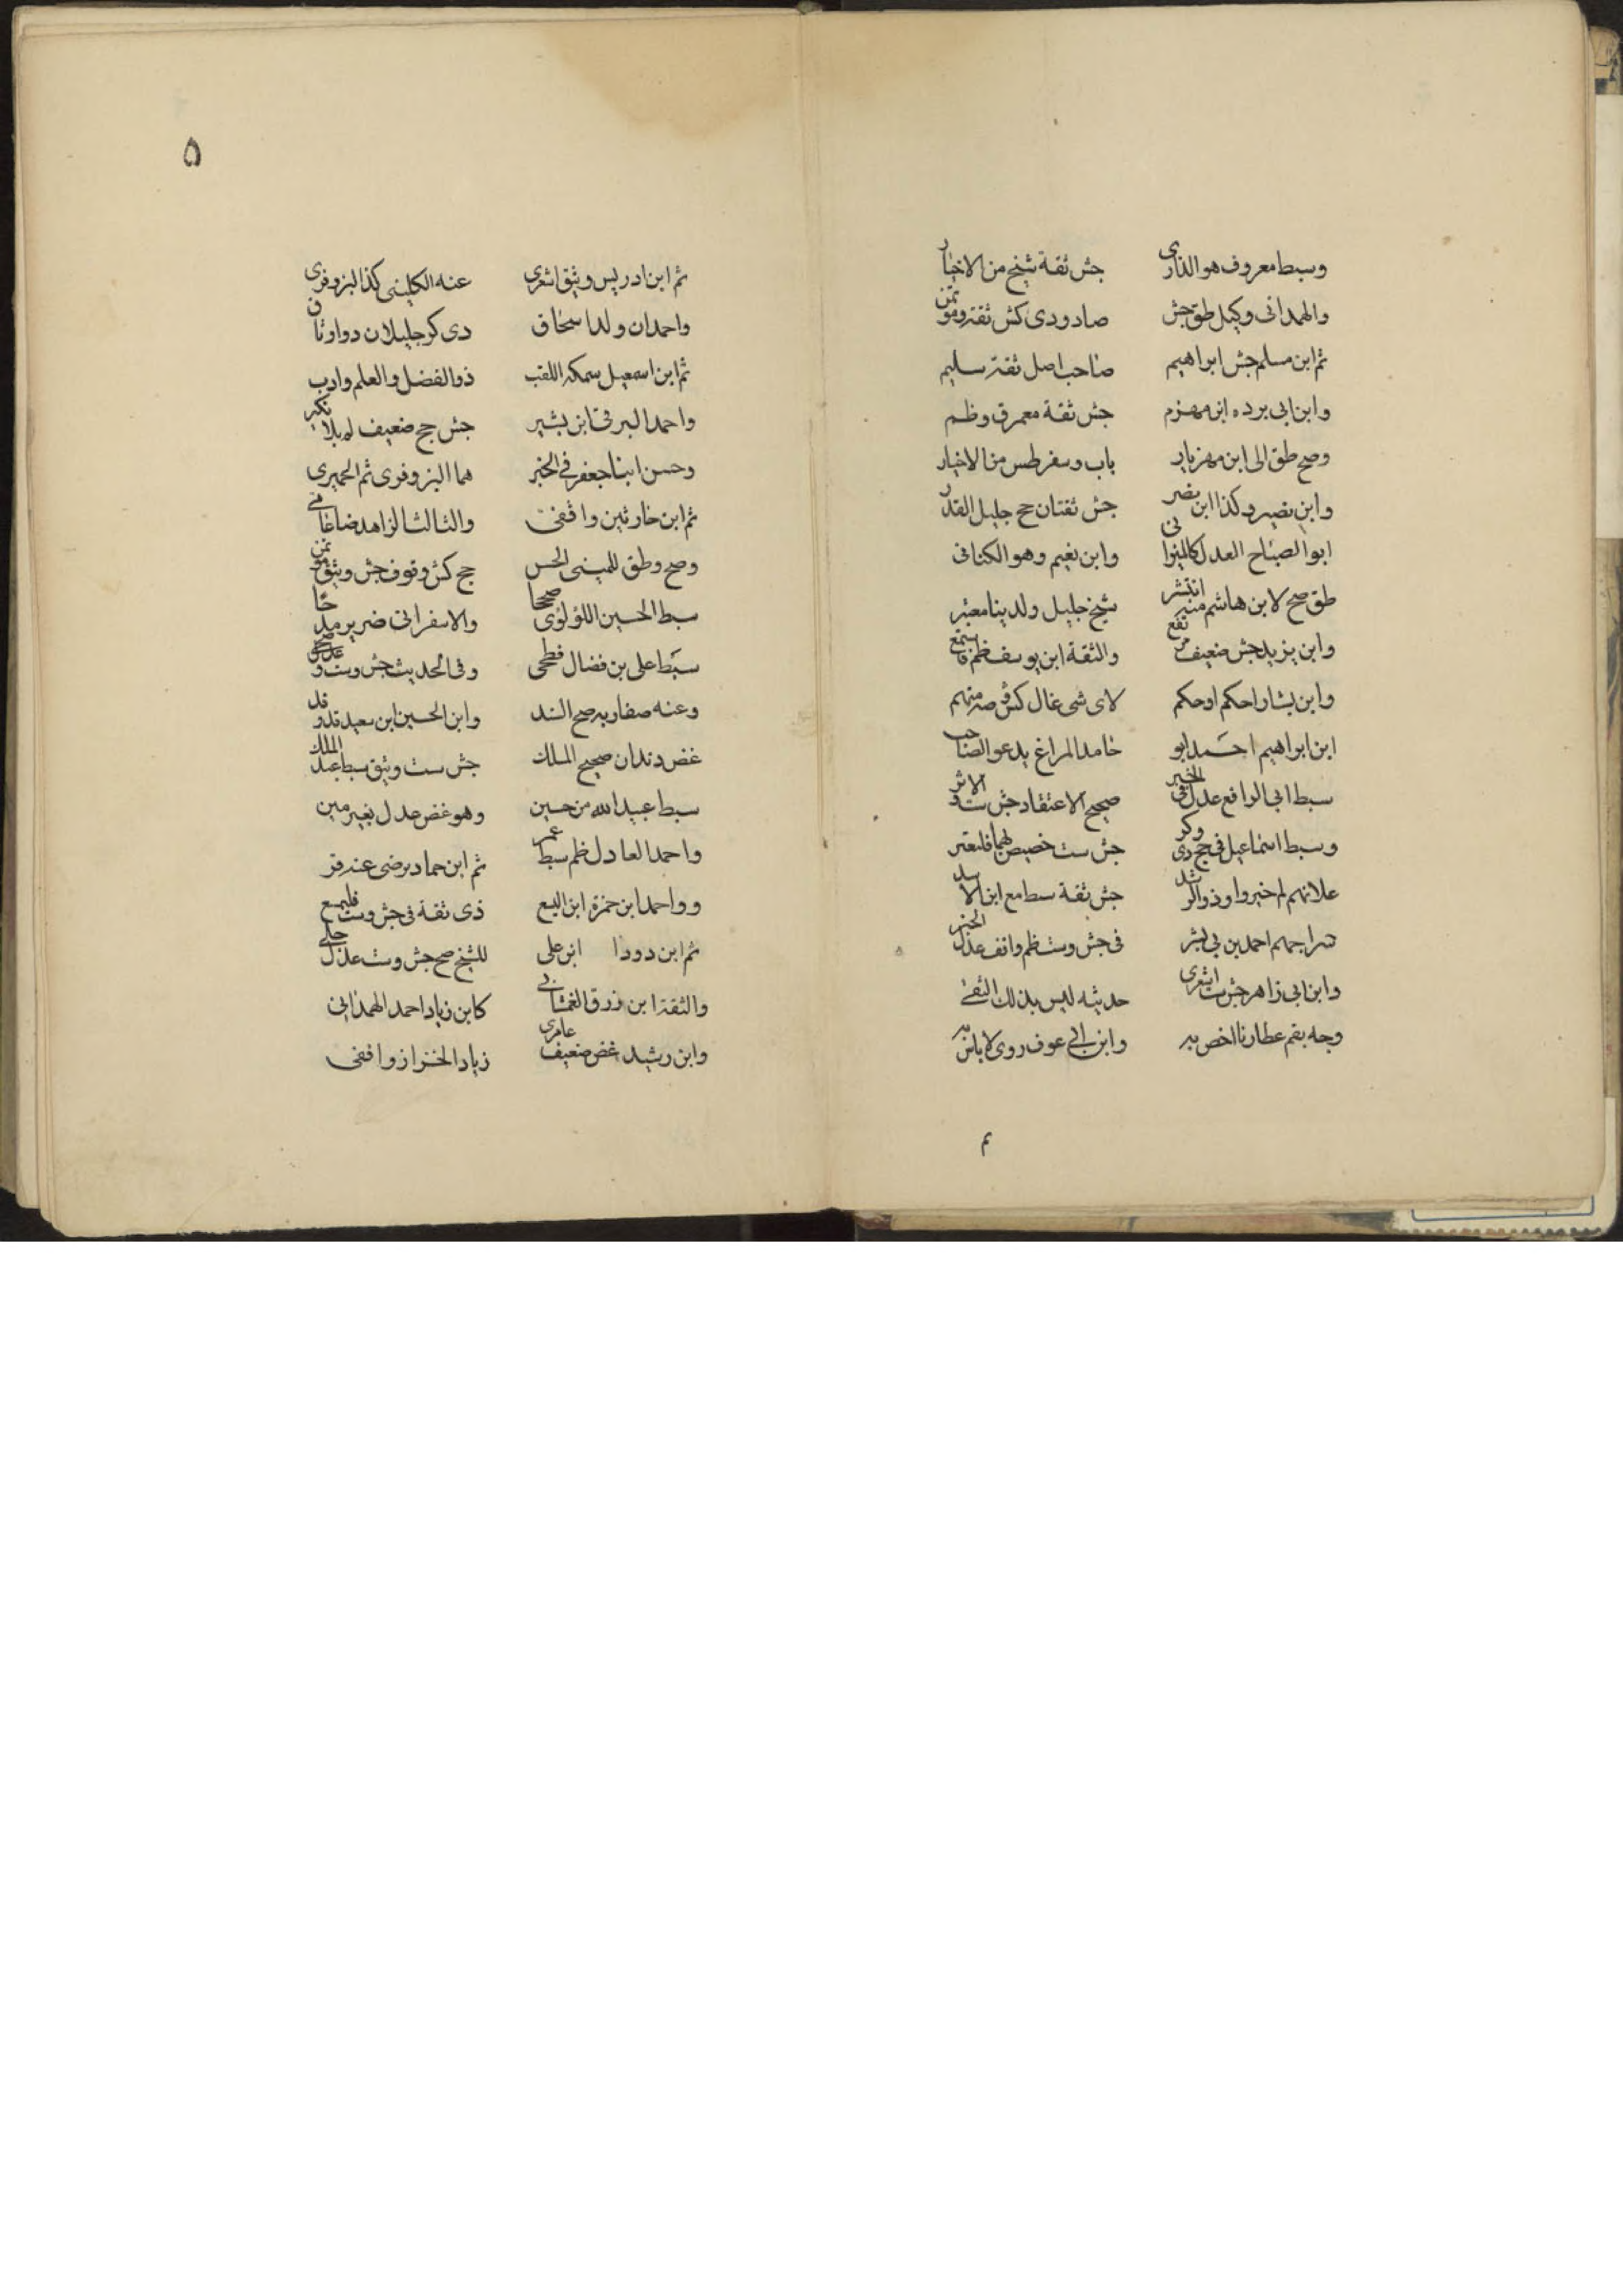 وسبط معروف هو الذاری جش ثقة شیخ من الاخیار
والهمدانی وکیل طق جش صاد ودی کش ثقة ومؤتمن
ثم ابن مسلم جش ابراهیم صاحب اصل ثقة سلیم
وابن ابی برده ابن مهزم جش ثقة معمر ق وظم
وصح طق الی ابن مهزیار باب وسفر طس من الاخیار
وابن نصیر وکذا ابن نصر جش ثقتان جح جلیل القدر
ابو الصباح العدل کالمیزان وابن نعیم وهو الکنانی
طق صح لابن هاشم منه انتشر شیخ جلیل ولدینا معتبر
وابن یزید جش ضعیف والثقة ابن یوسف ظم فاستمع
وابن بشار احکم او حکم لای شی غال کش وصه متهم
ابن ابراهیم احمد ابو حامد المراغی یدعو الصاحب
سبط ابی الرافع عدل فی الخبر صحیح الاعتقاد جش ست والاثر
وسبط اسماعیل فی جح دی وکر جش ست خصیص لهما فلیعتبر
علانهم لم خیر واو ذو الرشد جش ثقة سط مع ابن الاسد
تراجمهم احمد بن بی بشر فی جش وست ظم واقف عدل الخبر
وابن ابی زاهر جش ست اشعری حدیثه لیس بذلک النقی
وجه بقم عطارنا اخص به وابن ابی عوف روی لا باس به
م
۵
ثم ابن ادریس وثیق اشعری عنه الکلینی کذا البزوفری
واحمدان ولدا سحاق دی کر جلیلان دو اوثاق
ثم ابن اسمعیل سمکة اللقب ذو الفضل والعلم وادب
واحمد البرقی ابن بشیر جش جح ضعیف لم بلا نکیر
وحسن ابنا جعفر فی الخبر هما البزوفری ثم الحمیری
ثم ابن حارثین واقفی والثالث الزاهد ضاعامی
وصح وطق للمیثمی الحسن جح کش وقوف جش وثیق مؤتمن
سبط الحسین اللؤلؤی صححا والاسفراتی ضریر مدحا
سبط علی بن فضال فطحی وفی الحدیث جش وست و
وعنه صفار به صح السند وابن الحسین ابن سعید قد وقد
غض دندان صحیح المسلک جش ست وثیق سبط عبد الملک
سبط عبید الله من حسین وهو غض عدل بغیر مین
واحمد العادل ظم سبط عمر ثم ابن حماد برضی عند قر
وواحمد ابن حمزة ابن الیسع ذی ثقة فی جش وست فلیسمع
ثم ابن دودا ابن علی للشیخ صح جش وست عدل جلی
والثقة ابن رزق الغمشانی کابن زیاد احمد الهمدانی
وابن رشید غض ضعیف عامری زیاد الخزاز واقفی